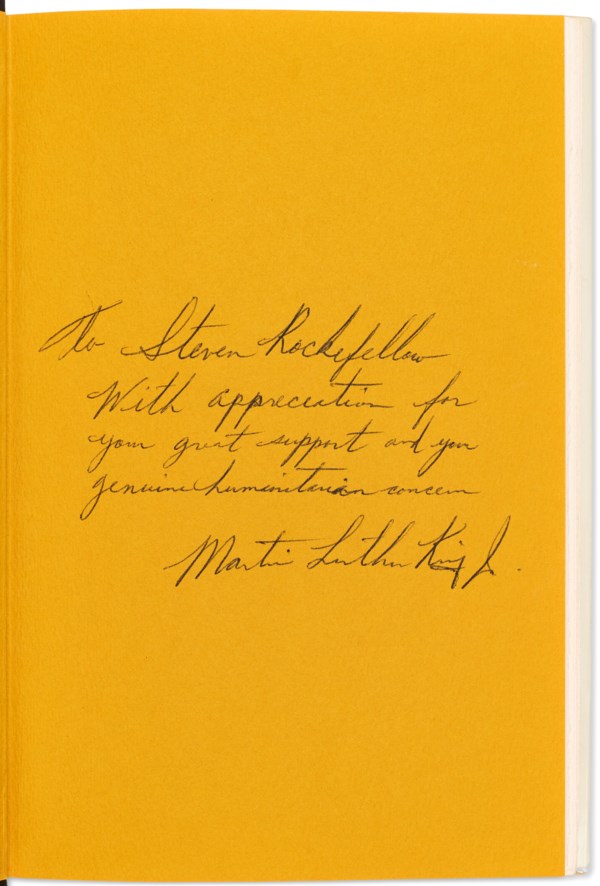 To Steven Rockefellow
With appreciation for
your great support and your
genuine humanitarian concern
Martin Luther King Jr.